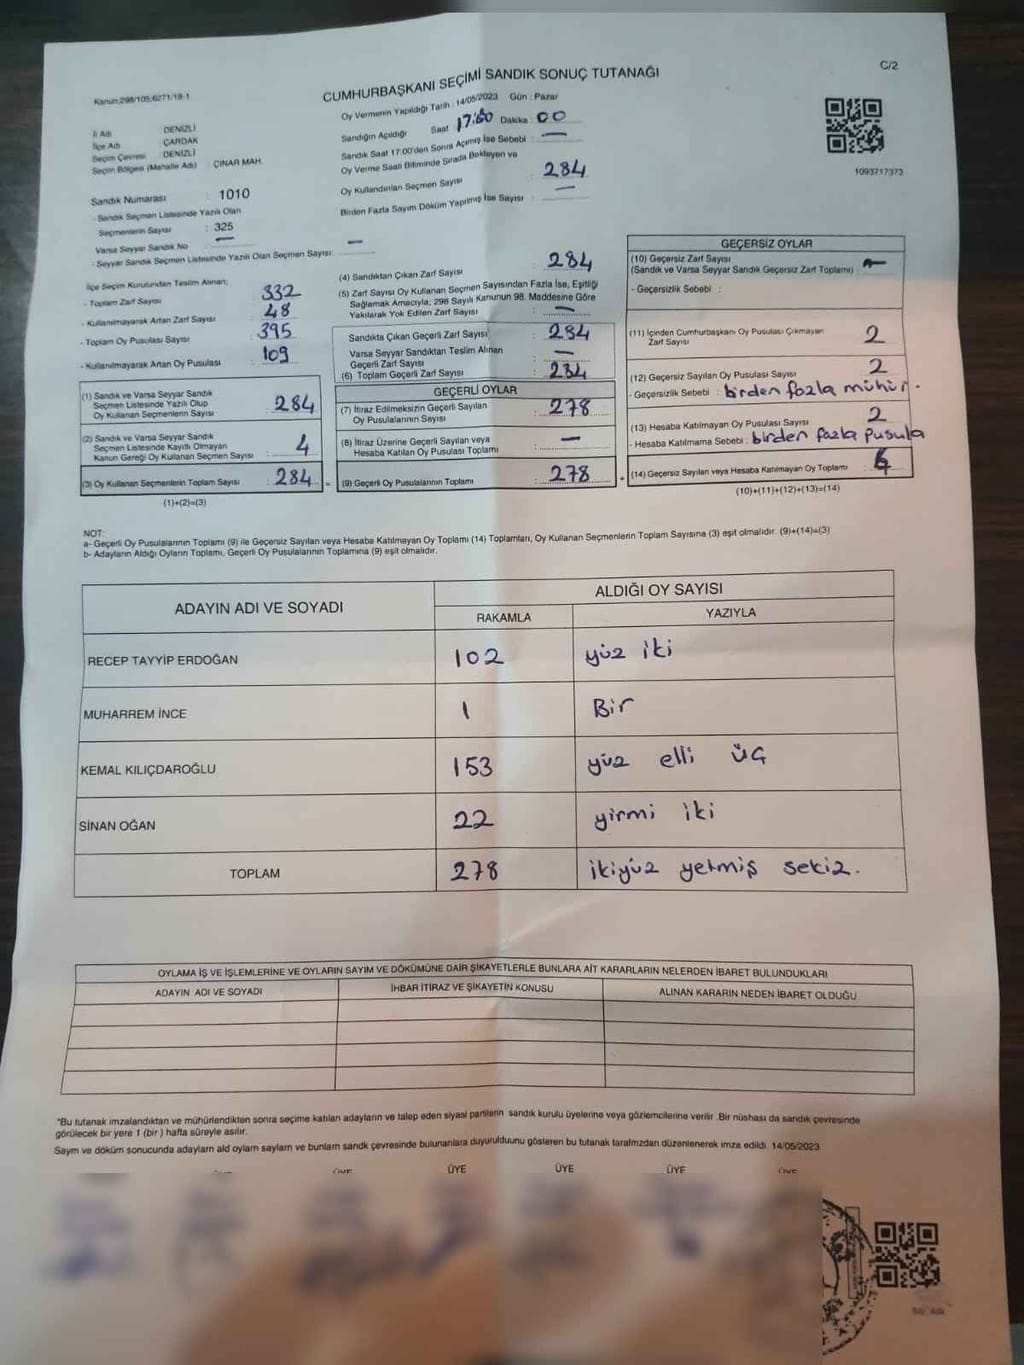 C/2
Kanun:298/105;6271/18-1
CUMHURBAŞKANI SEÇİMİ SANDIK SONUÇ TUTANAĞI
Oy Vermenin Yapıldığı Tarih : 14/05/2023 Gün : Pazar
İl Adı DENİZLİ
İlçe Adı ÇARDAK
Seçim Çevresi DENİZLİ
Seçim Bölgesi (Mahalle Adı) : ÇINAR MAH.
Sandığın Açıldığı Saat 17:00 Dakika : 00
Sandık Saat 17:00'den Sonra Açılmış İse Sebebi : —
Oy Verme Saati Bitiminde Sırada Bekleyen ve
Oy Kullandırılan Seçmen Sayısı : 284
Birden Fazla Sayım Döküm Yapılmış İse Sayısı : —
1093717373
Sandık Numarası : 1010
- Sandık Seçmen Listesinde Yazılı Olan
Seçmenlerin Sayısı : 325
Varsa Seyyar Sandık No : —
- Seyyar Sandık Seçmen Listesinde Yazılı Olan Seçmen Sayısı: —
İlçe Seçim Kurulundan Teslim Alınan;
- Toplam Zarf Sayısı : 332
- Kullanılmayarak Artan Zarf Sayısı : 48
- Toplam Oy Pusulası Sayısı : 395
- Kullanılmayarak Artan Oy Pusulası : 109
(1) Sandık ve Varsa Seyyar Sandık
Seçmen Listesinde Yazılı Olup
Oy Kullanan Seçmenlerin Sayısı : 284
(2) Sandık ve Varsa Seyyar Sandık
Seçmen Listesinde Kayıtlı Olmayan
Kanun Gereği Oy Kullanan Seçmen Sayısı : 4
(3) Oy Kullanan Seçmenlerin Toplam Sayısı : 284
(1)+(2)=(3)
(4) Sandıktan Çıkan Zarf Sayısı : 284
(5) Zarf Sayısı Oy Kullanan Seçmen Sayısından Fazla İse, Eşitliği
Sağlamak Amacıyla; 298 Sayılı Kanunun 98. Maddesine Göre
Yakılarak Yok Edilen Zarf Sayısı : —
Sandıkta Çıkan Geçerli Zarf Sayısı : 284
Varsa Seyyar Sandıktan Teslim Alınan
Geçerli Zarf Sayısı : —
(6) Toplam Geçerli Zarf Sayısı : 284
GEÇERLİ OYLAR
(7) İtiraz Edilmeksizin Geçerli Sayılan
Oy Pusulalarının Sayısı : 278
(8) İtiraz Üzerine Geçerli Sayılan veya
Hesaba Katılan Oy Pusulası Toplamı : —
= (9) Geçerli Oy Pusulalarının Toplamı : 278 +
GEÇERSİZ OYLAR
(10) Geçersiz Zarf Sayısı
(Sandık ve Varsa Seyyar Sandık Geçersiz Zarf Toplamı) : —
- Geçersizlik Sebebi :
(11) İçinden Cumhurbaşkanı Oy Pusulası Çıkmayan
Zarf Sayısı 2
(12) Geçersiz Sayılan Oy Pusulası Sayısı 2
- Geçersizlik Sebebi : birden fazla mühür.
(13) Hesaba Katılmayan Oy Pusulası Sayısı 2
- Hesaba Katılmama Sebebi : birden fazla pusula
(14) Geçersiz Sayılan veya Hesaba Katılmayan Oy Toplamı : 6
(10)+(11)+(12)+(13)=(14)
NOT:
a- Geçerli Oy Pusulalarının Toplamı (9) ile Geçersiz Sayılan veya Hesaba Katılmayan Oy Toplamı (14) Toplamları, Oy Kullanan Seçmenlerin Toplam Sayısına (3) eşit olmalıdır. (9)+(14)=(3)
b- Adayların Aldığı Oyların Toplamı, Geçerli Oy Pusulalarının Toplamına (9) eşit olmalıdır.
ADAYIN ADI VE SOYADI
ALDIĞI OY SAYISI
RAKAMLA YAZIYLA
RECEP TAYYİP ERDOĞAN 102 yüz iki
MUHARREM İNCE 1 Bir
KEMAL KILIÇDAROĞLU 153 yüz elli üç
SİNAN OĞAN 22 yirmi iki
TOPLAM 278 ikiyüz yetmiş sekiz.
OYLAMA İŞ VE İŞLEMLERİNE VE OYLARIN SAYIM VE DÖKÜMÜNE DAİR ŞİKAYETLERLE BUNLARA AİT KARARLARIN NELERDEN İBARET BULUNDUKLARI
ADAYIN ADI VE SOYADI İHBAR İTİRAZ VE ŞİKAYETİN KONUSU ALINAN KARARIN NEDEN İBARET OLDUĞU
*Bu tutanak imzalandıktan ve mühürlendikten sonra seçime katılan adayların ve talep eden siyasi partilerin sandık kurulu üyelerine veya gözlemcilerine verilir .Bir nüshası da sandık çevresinde
görülecek bir yere 1 (bir ) hafta süreyle asılır.
Saym ve döküm sonucunda adaylarn ald oylarn saylarn ve bunlarn sandk çevresinde bulunanlara duyurulduunu gösteren bu tutanak tarafmzdan düzenlenerek imza edildi. 14/05/2023
ÜYE ÜYE ÜYE ÜYE ÜYE